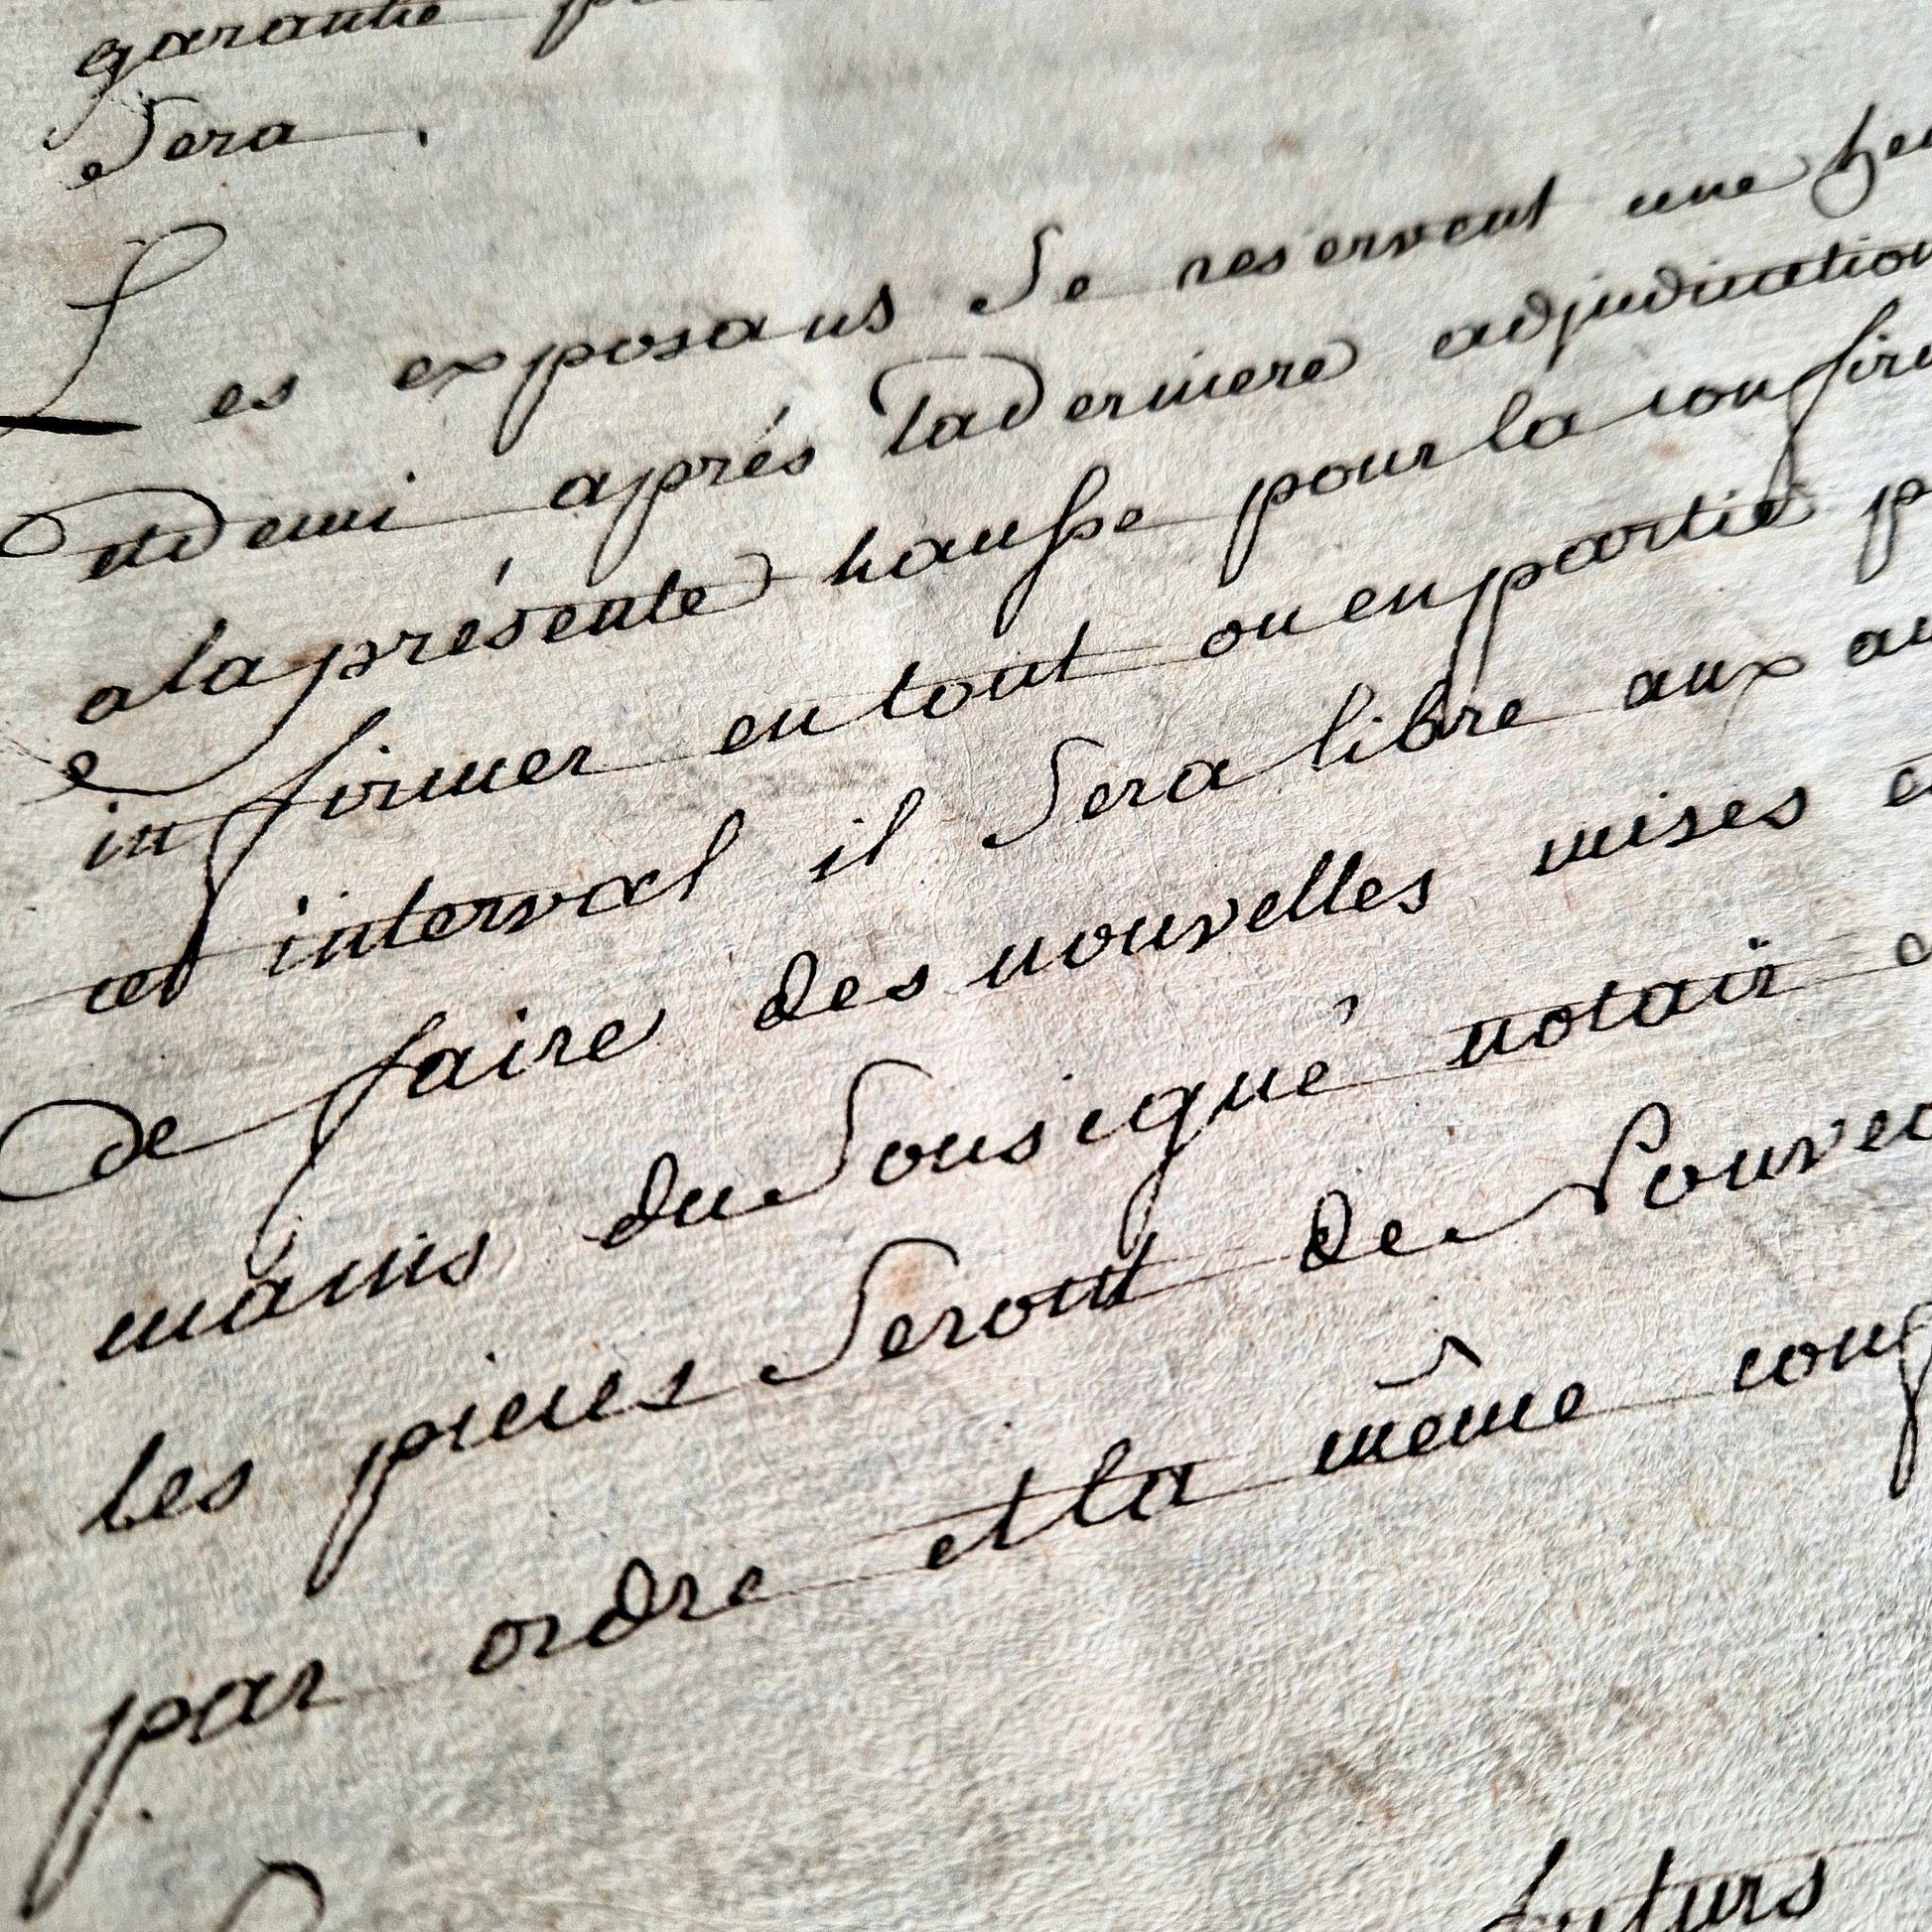 garantie
Sera .
Les exposans Se reservent une
et demi aprés la derniere adjudication
a la présente hausse pour la
infirmer en tout ou en partie
cet interval il Sera libre aux
de faire des nouvelles mises
mains du Sousigné notair
les pieces Seront de
par ordre et la même
futurs